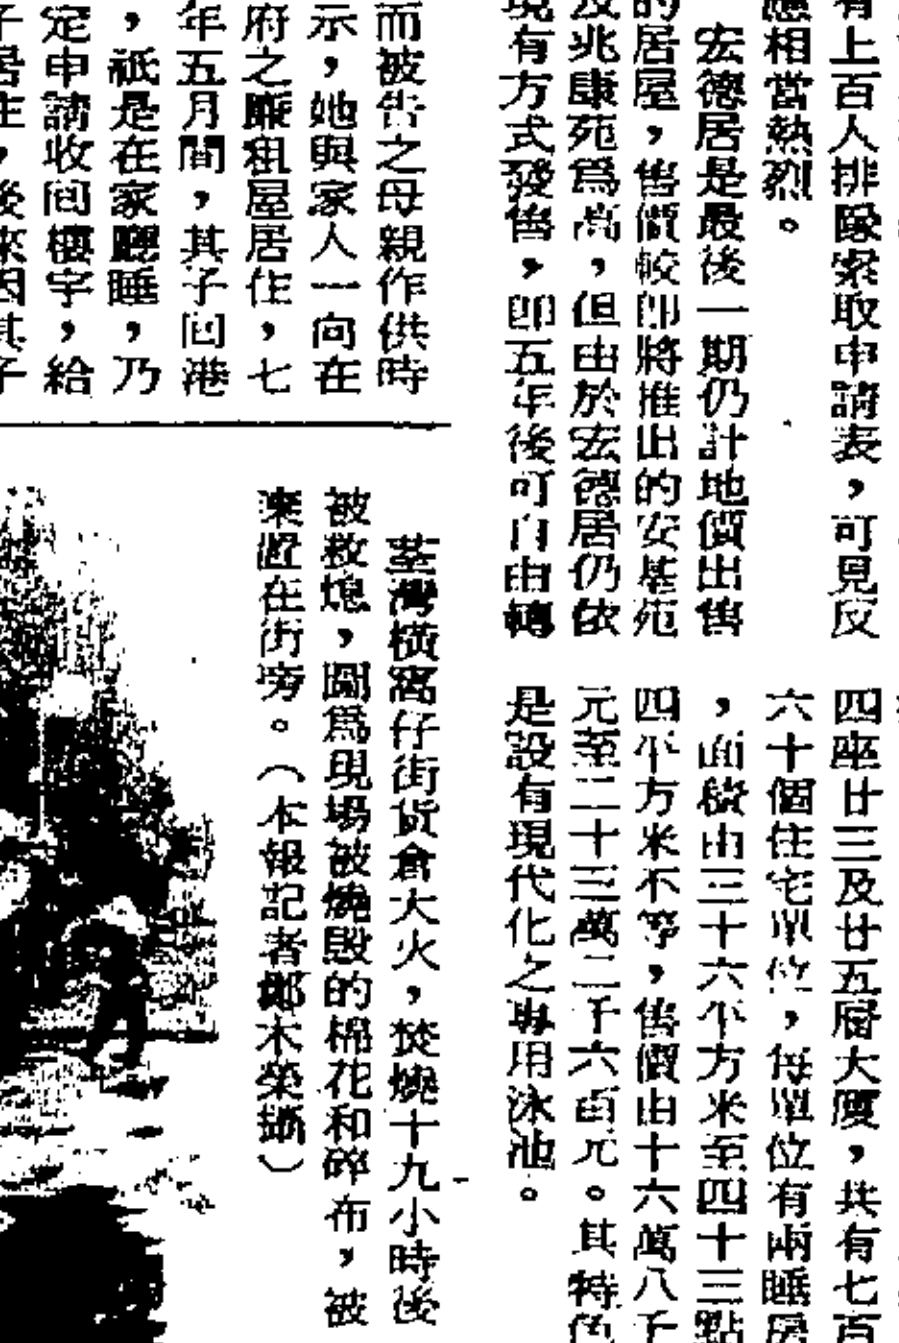 有上百人排隊索取申請表,可見反
應相當熱烈。
宏德居是最後一期仍計地價出售
的居屋,售價較即將推出的安基苑
及兆康苑爲高,但由於宏德居仍依
現有方式發售,即五年後可自由轉
四座廿三及廿五層大厦,共有七百
六十個住宅單位,每單位有兩睡房
,面積由三十六平方米至四十三點
四平方米不等,售價由十六萬八千
元至二十三萬二千六百元。其特色
是設有現代化之專用泳池。
而被告之母親作供時
示,她與家人一向在
府之廉租屋居住,七
年五月間,其子回港
,祇是在家廳睡,乃
定申請收回樓宇,給
子居住,後來因其子
荃灣橫窩仔街貨倉大火,焚燒十九小時後
被救熄,圖爲現場被燒毀的棉花和碎布,被
棄置在街旁。(本報記者鄭木榮攝)